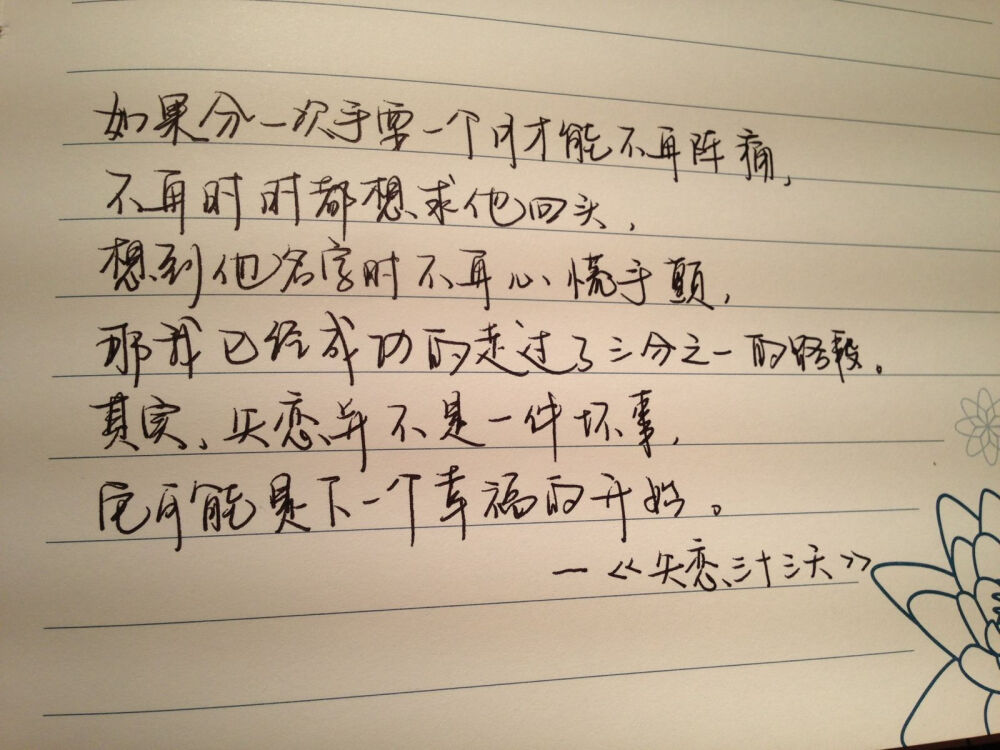 如果分一次手要一个月才能不再阵痛,
不再时时都想求他回头,
想到他名字时不再心慌手颤,
那我已经成功的走过了三分之一的路段。
其实、失恋并不是一件坏事,
它可能是下一个幸福的开始。
—《失恋三十三天》